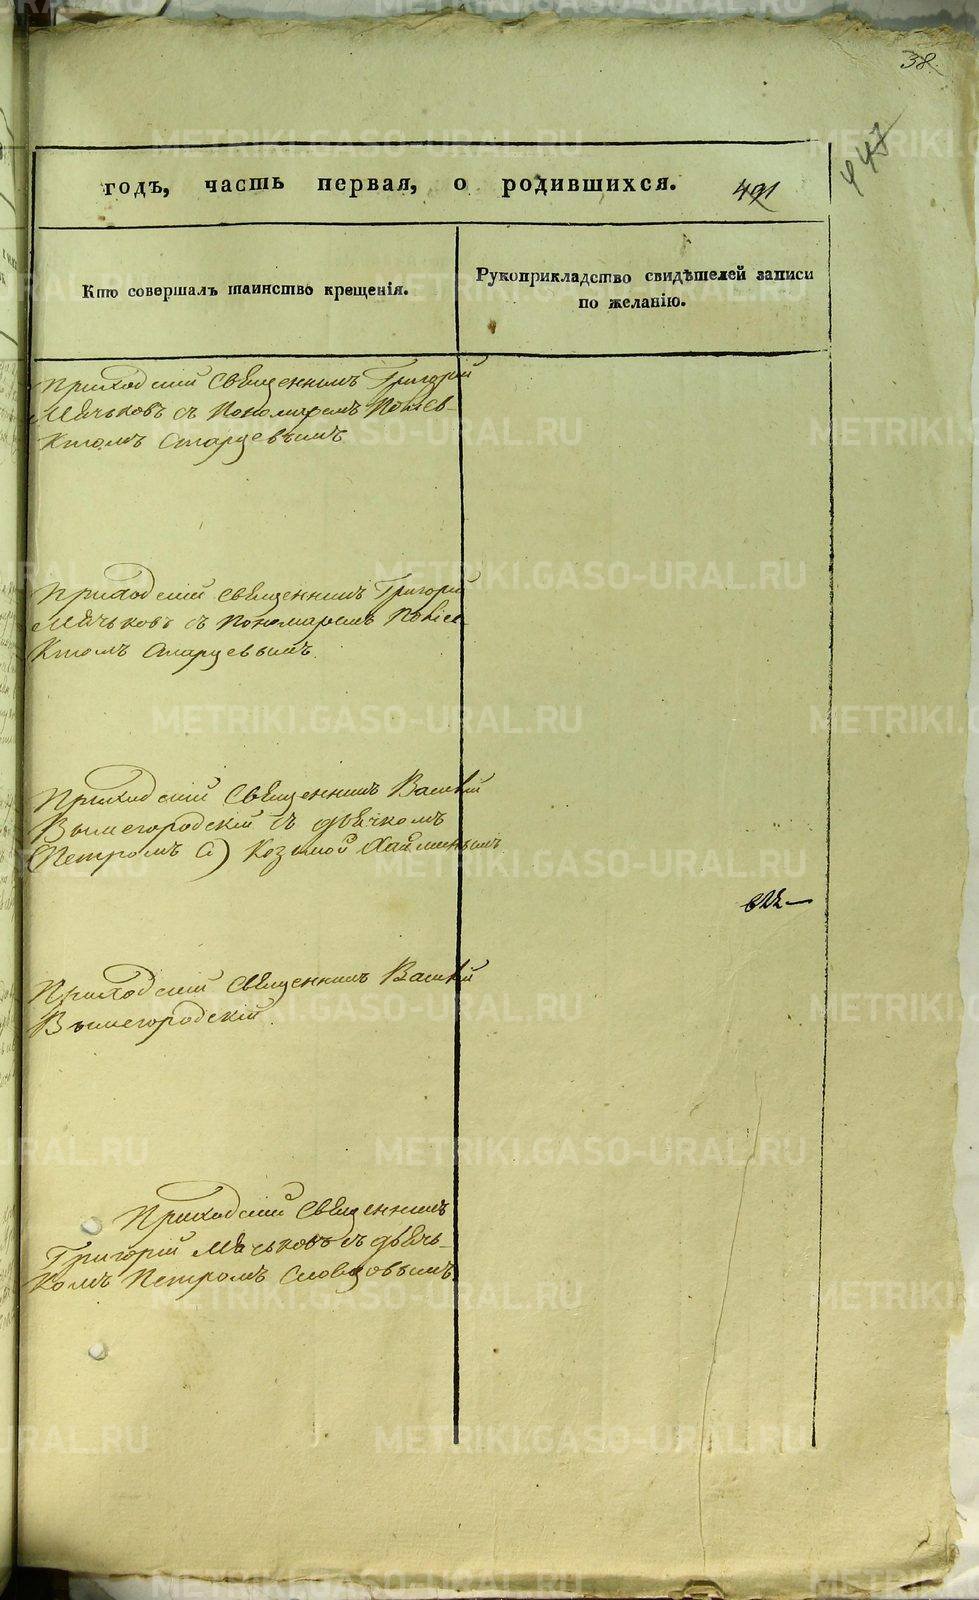 38.
447
годъ, часть первая, о родившихся. 491
Кто совершалъ таинство крещенія.
Рукоприкладство свидѣтелей записи
по желанію.
Приходскій Священникъ Григорій
Мячьковъ съ Пономаремъ Поліев-
Ктомъ Старцевымъ
Приходскій Священникъ Григорій
Мячьковъ съ Пономаремъ Поліев
Ктомъ Старцевымъ.
Приходскій Священникъ Василій
Вышегородскій съ дьячкомъ
(Петромъ С) Козьмой
Приходскій Священникъ Василій
Вышегородскій.
Приходскій Священникъ
Григорій Мячьковъ съ дьячь-
Комъ Петромъ Словцовымъ
METRIKI.GASO-URAL.RU